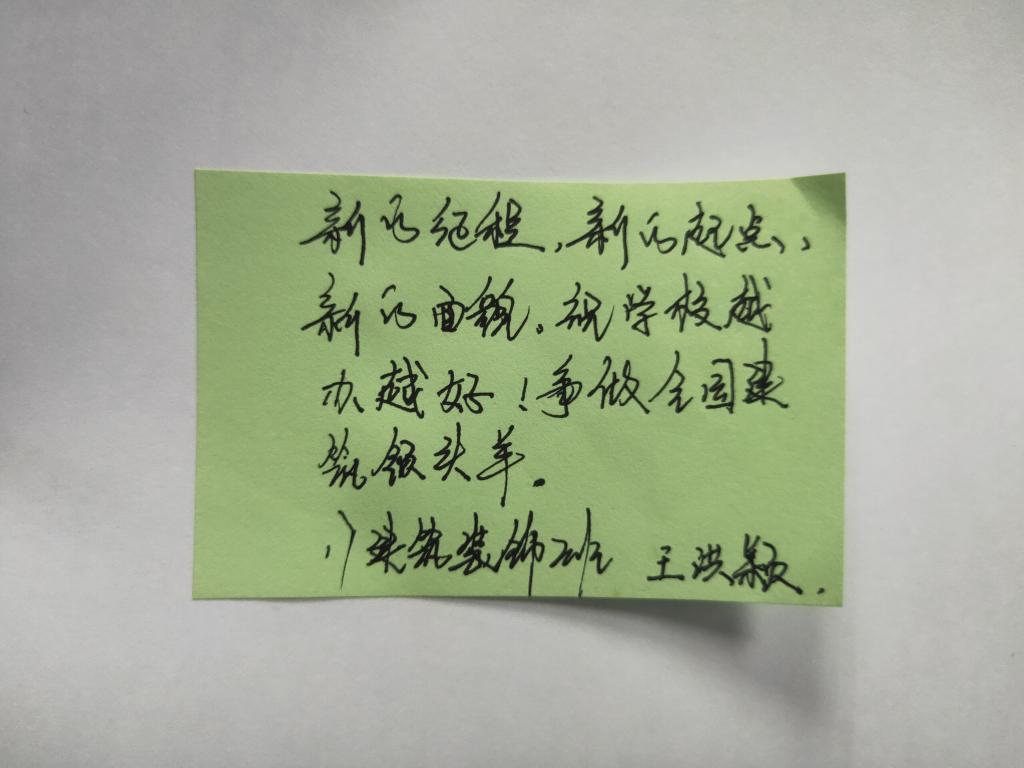 新的征程，新的起点，
新的面貌。祝学校越
办越好！争做全国建
筑领头羊。
建筑装饰班 王洪颖.